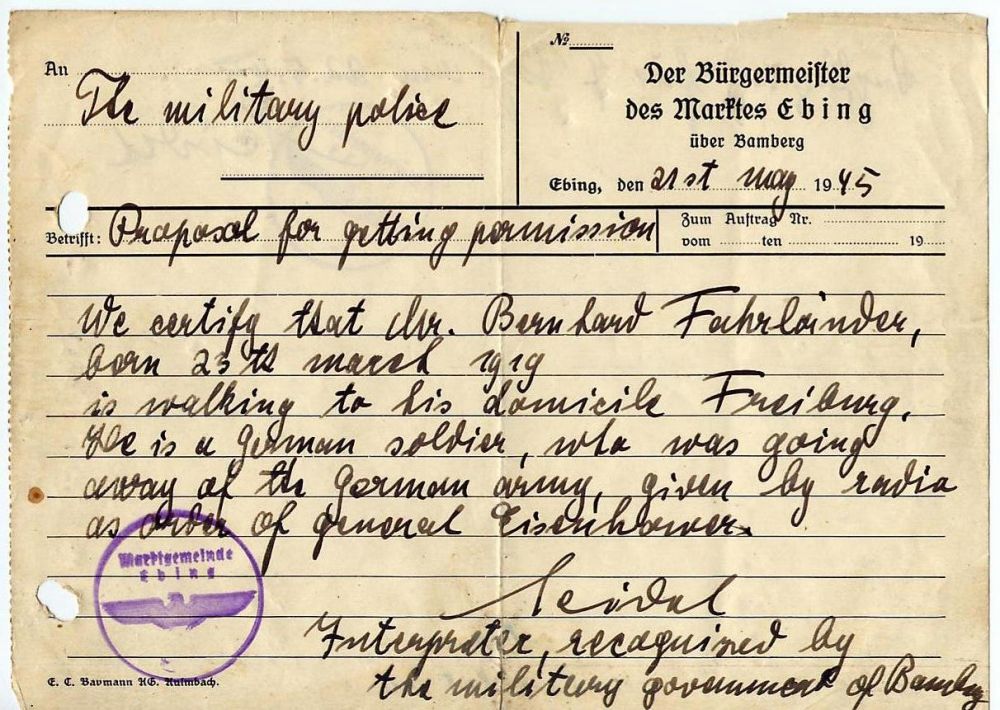 An
The military police
№
Der Bürgermeister
des Marktes Ebing
über Bamberg
Ebing, den 21st may 1945
Betrifft: Proposal for getting permission
Zum Auftrag Nr.
vom ten 19
We certify that Mr. Bernhard Fahrländer,
born 23th march 1919
is walking to his domicile Freiburg.
He is a German soldier, who was going
away of the German army, given by radio
as order of general Eisenhower.
Marktgemeinde
Ebing
Seidel
Interpreter, recognized by
the military government of Bamberg
E. C. Baumann KG. Kulmbach.